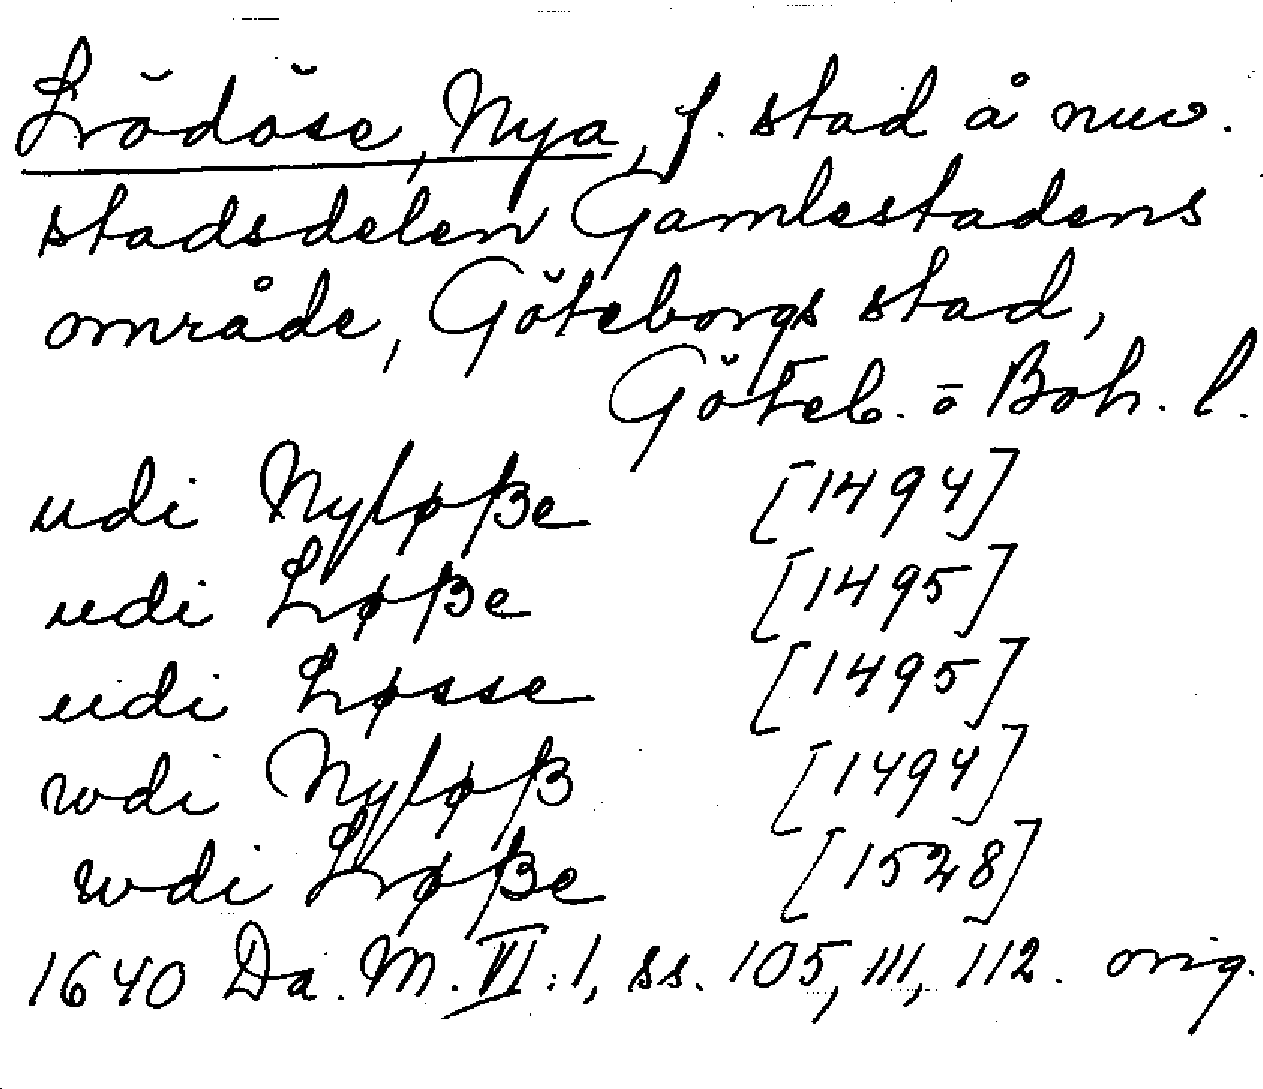 Lödöse, Nya, f. stad å nuv.
stadsdelen Gamlestadens
område, Göteborgs stad,
Göteb. o Boh. l.
udi Nyløße [1494]
udi Løße [1495]
udi Løsse [1495]
wdi Nyløß [1494]
wdi Løße [1528]
1640 Da. M. VI:1, ss. 105, 111, 112. orig.